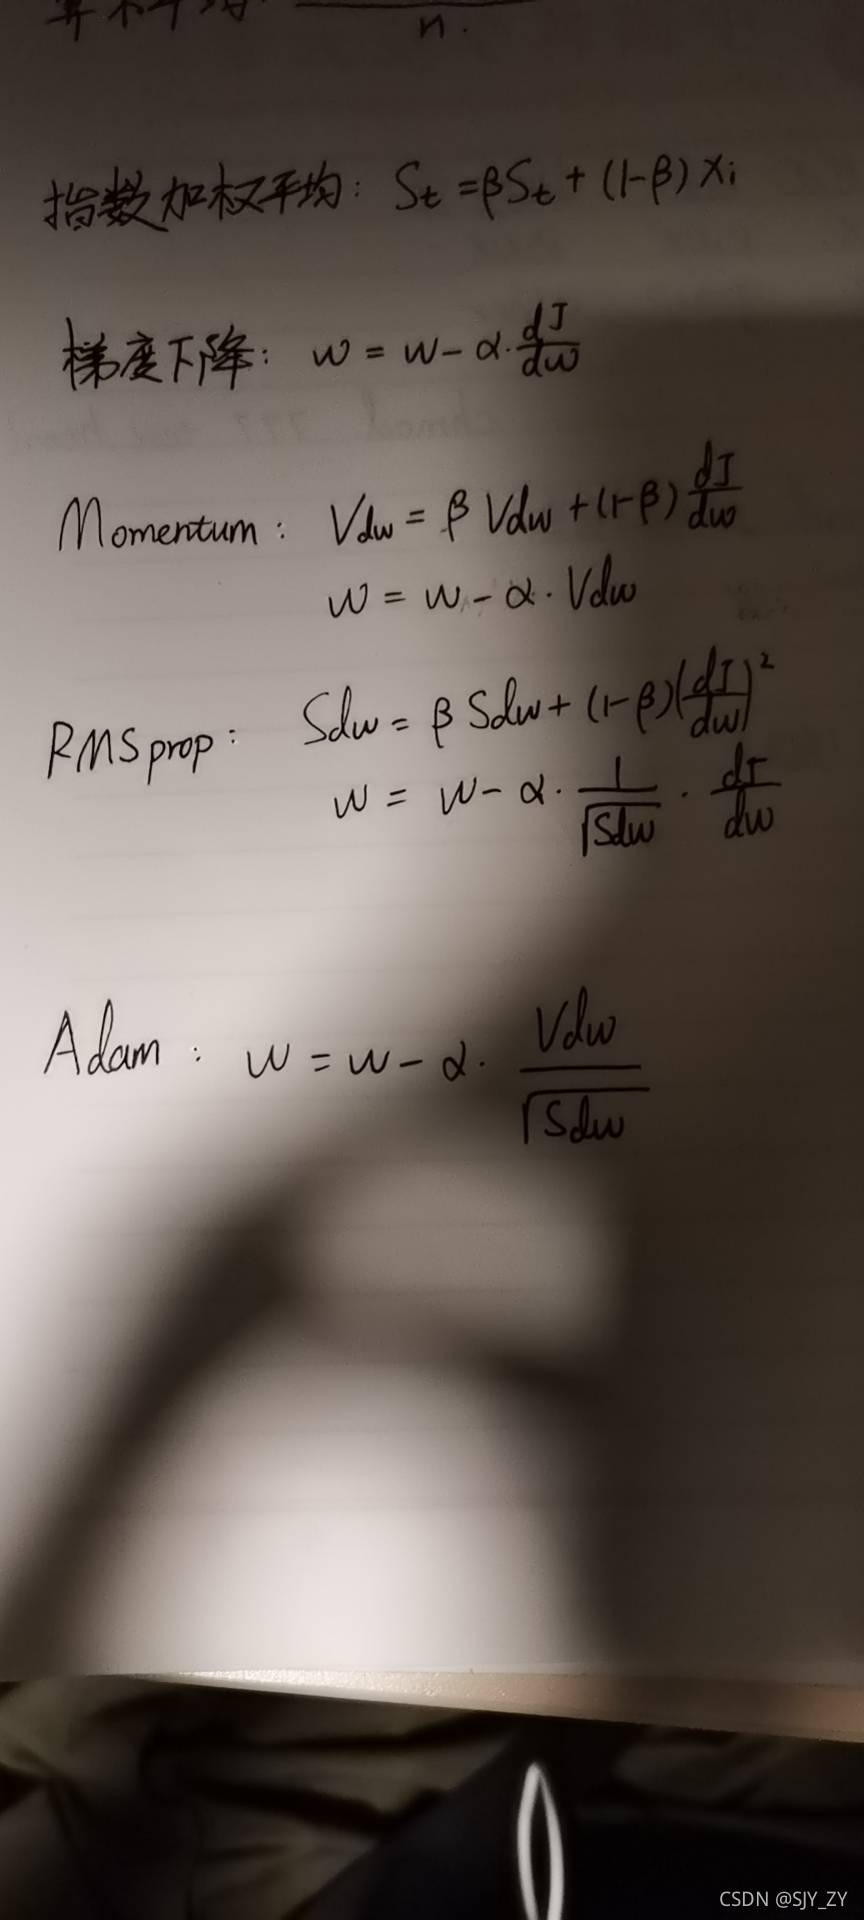 n.
指数加权平均: St = βSt + (1-β) Xi
梯度下降: w = w - α · dJ/dw
Momentum: Vdw = β Vdw + (1-β) dJ/dw
w = w - α · Vdw
RMSprop: Sdw = β Sdw + (1-β)(dJ/dw)²
w = w - α · 1/√Sdw · dJ/dw
Adam: w = w - α · Vdw/√Sdw
CSDN @SJY_ZY